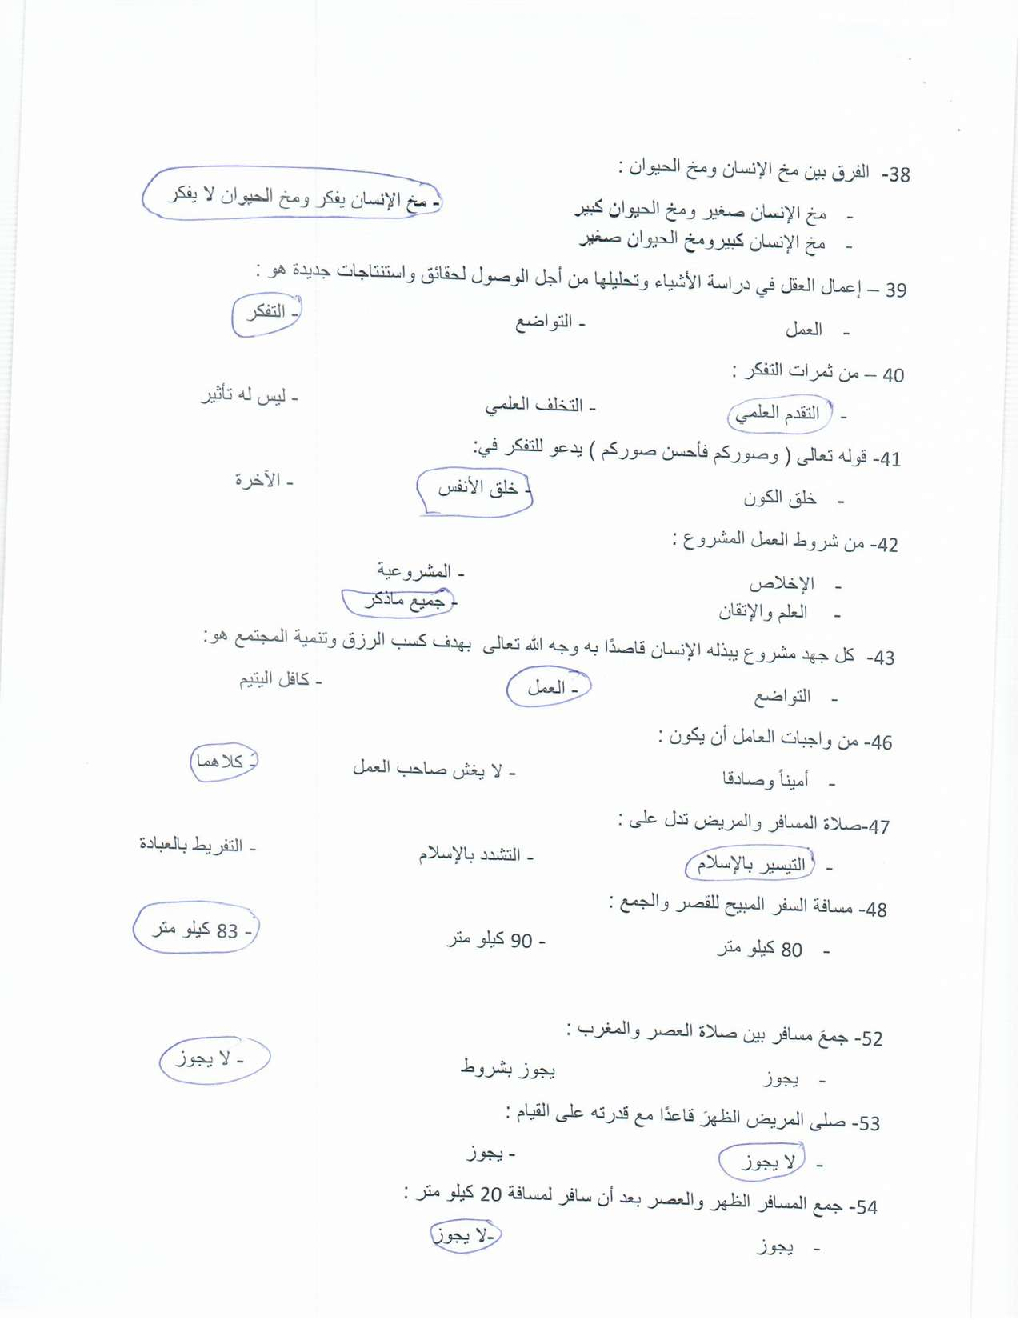 38- الفرق بين مخ الإنسان ومخ الحيوان :
- مخ الإنسان صغير ومخ الحيوان كبير - مخ الإنسان يفكر ومخ الحيوان لا يفكر
- مخ الإنسان كبيرومخ الحيوان صغير
39 – إعمال العقل في دراسة الأشياء وتحليلها من أجل الوصول لحقائق واستنتاجات جديدة هو :
- العمل - التواضع - التفكر
40 – من ثمرات التفكر :
- التقدم العلمي - التخلف العلمي - ليس له تأثير
41- قوله تعالى ( وصوركم فأحسن صوركم ) يدعو للتفكر في:
- خلق الكون - خلق الأنفس - الآخرة
42- من شروط العمل المشروع :
- الإخلاص - المشروعية
- العلم والإتقان - جميع ماذكر
43- كل جهد مشروع يبذله الإنسان قاصدًا به وجه الله تعالى بهدف كسب الرزق وتنمية المجتمع هو:
- التواضع - العمل - كافل اليتيم
46- من واجبات العامل أن يكون :
- أميناً وصادقا - لا يغش صاحب العمل - كلاهما
47-صلاة المسافر والمريض تدل على :
- التيسير بالإسلام - التشدد بالإسلام - التفريط بالعبادة
48- مسافة السفر المبيح للقصر والجمع :
- 80 كيلو متر - 90 كيلو متر - 83 كيلو متر
52- جمعَ مسافر بين صلاة العصر والمغرب :
- يجوز يجوز بشروط - لا يجوز
53- صلى المريض الظهرَ قاعدًا مع قدرته على القيام :
- لا يجوز - يجوز
54- جمع المسافر الظهر والعصر بعد أن سافر لمسافة 20 كيلو متر :
- يجوز -لا يجوز